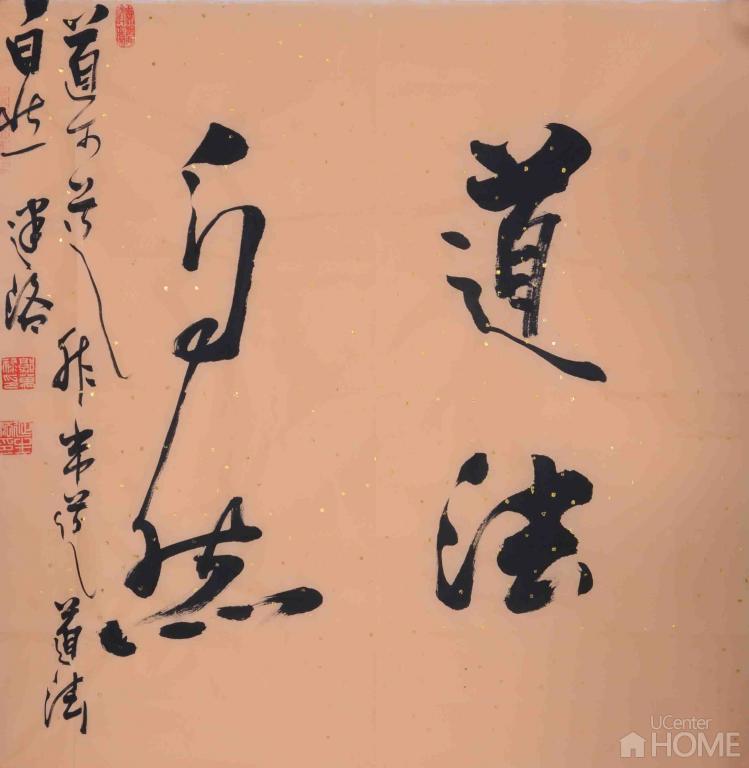 道法
自然
道可道非常道道法
自然 建路
UCenter
HOME